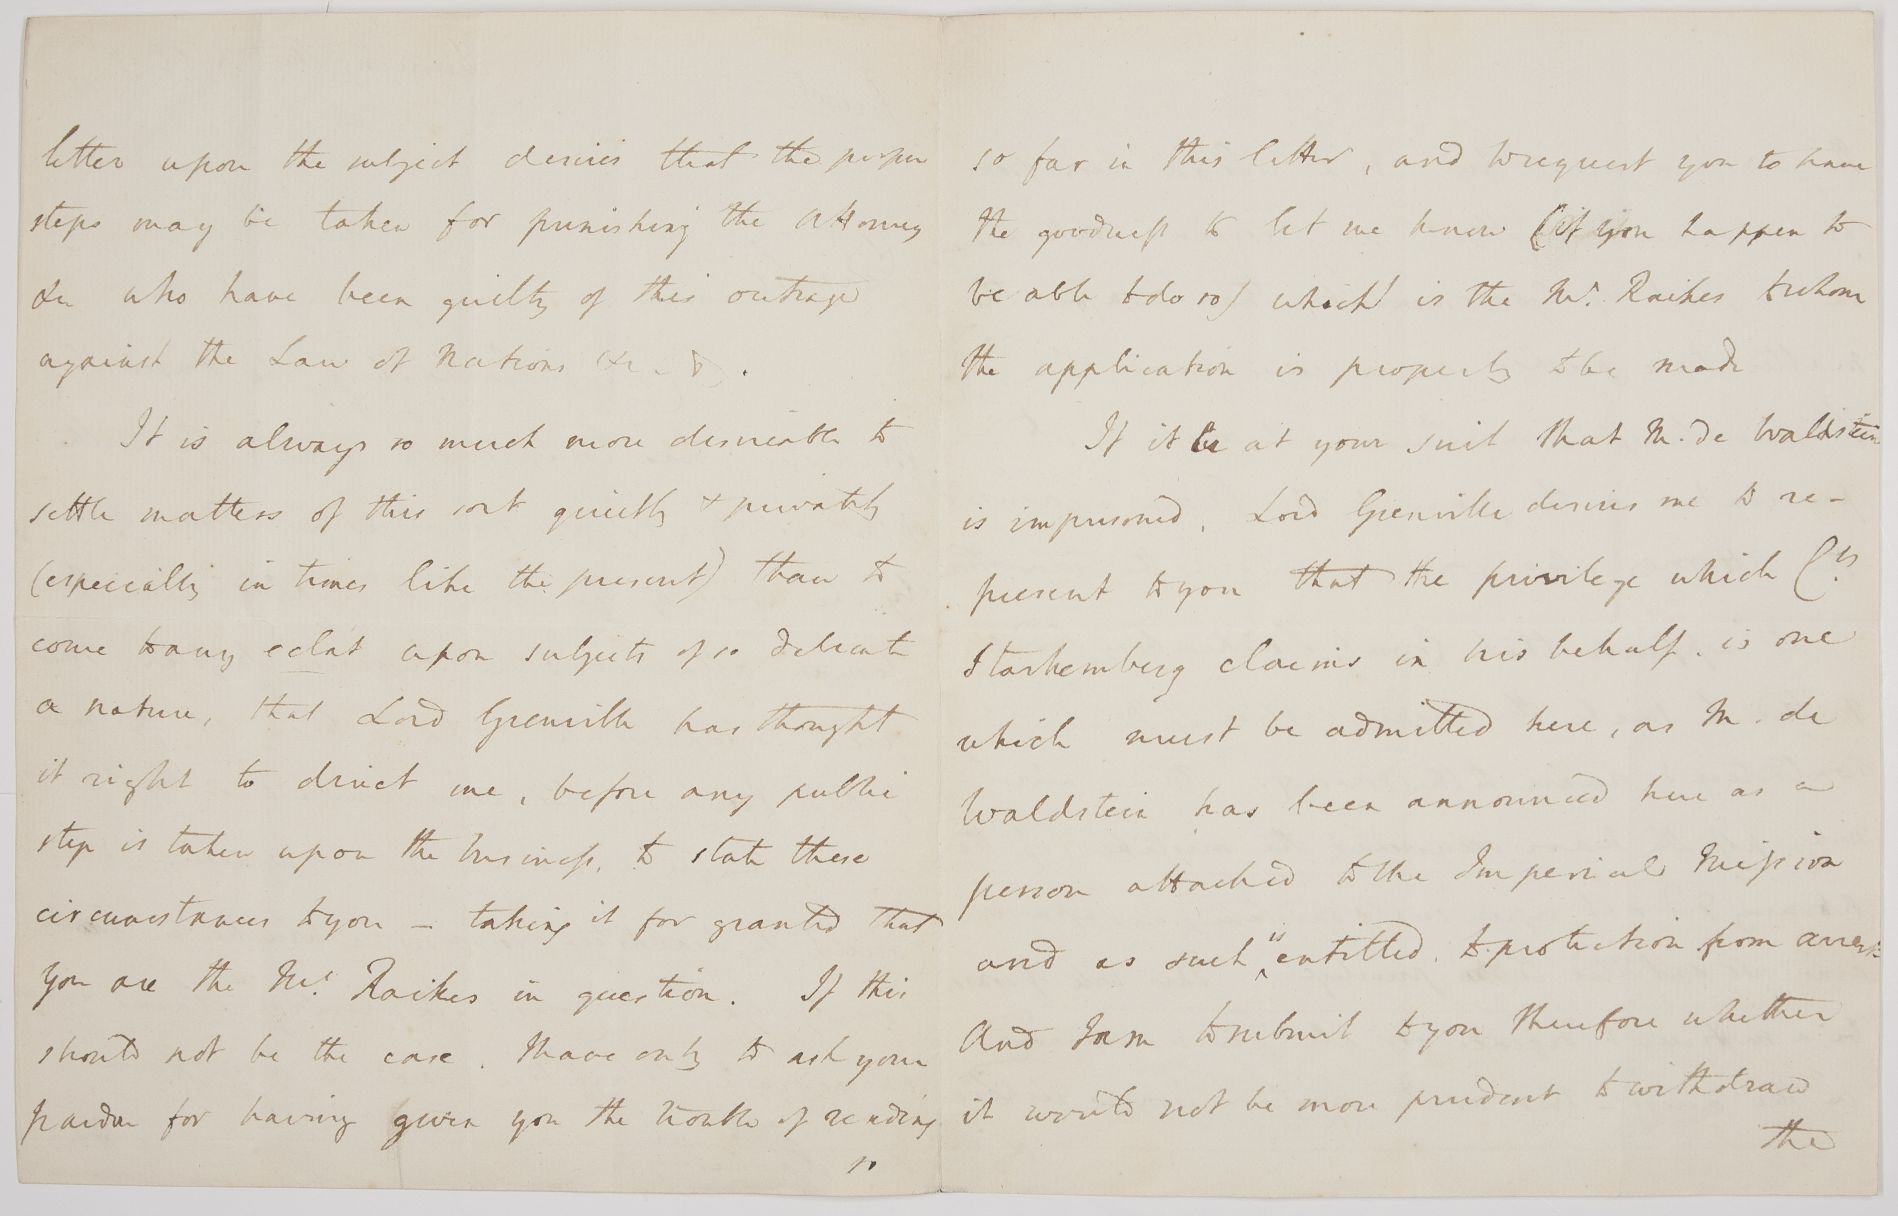 letter upon the subject desires that the proper
steps may be taken for punishing the Attorney
&c who have been guilty of this outrage
against the Law of Nations &c. &.
It is always so much more desireable to
settle matters of this sort quietly & privately
(especially in times like the present) than to
come to any eclat upon subjects of so delicate
a nature, that Lord Grenville has thought
it right to direct me, before any public
step is taken upon the business, to state these
circumstances to you – taking it for granted that
you are the Mr. Raikes in question. If this
should not be the case. I have only to ask your
pardon for having given you the trouble of reading
so
so far in this letter, and to request you to have
the goodness to let me know (if you happen to
be able to do so) which is the Mr. Raikes to whom
the application is properly to be made
If it be at your suit that M. de Waldstein
is imprisoned, Lord Grenville desires me to re-
present to you that the privilege which Ct.
Starhemberg claims in his behalf. is one
which must be admitted here, as M. de
Waldstein has been announced here as a
person attached to the Imperial Mission
and as such is entitled to protection from arrest.
And I am to submit to you therefore whether
it would not be more prudent to withdraw
the